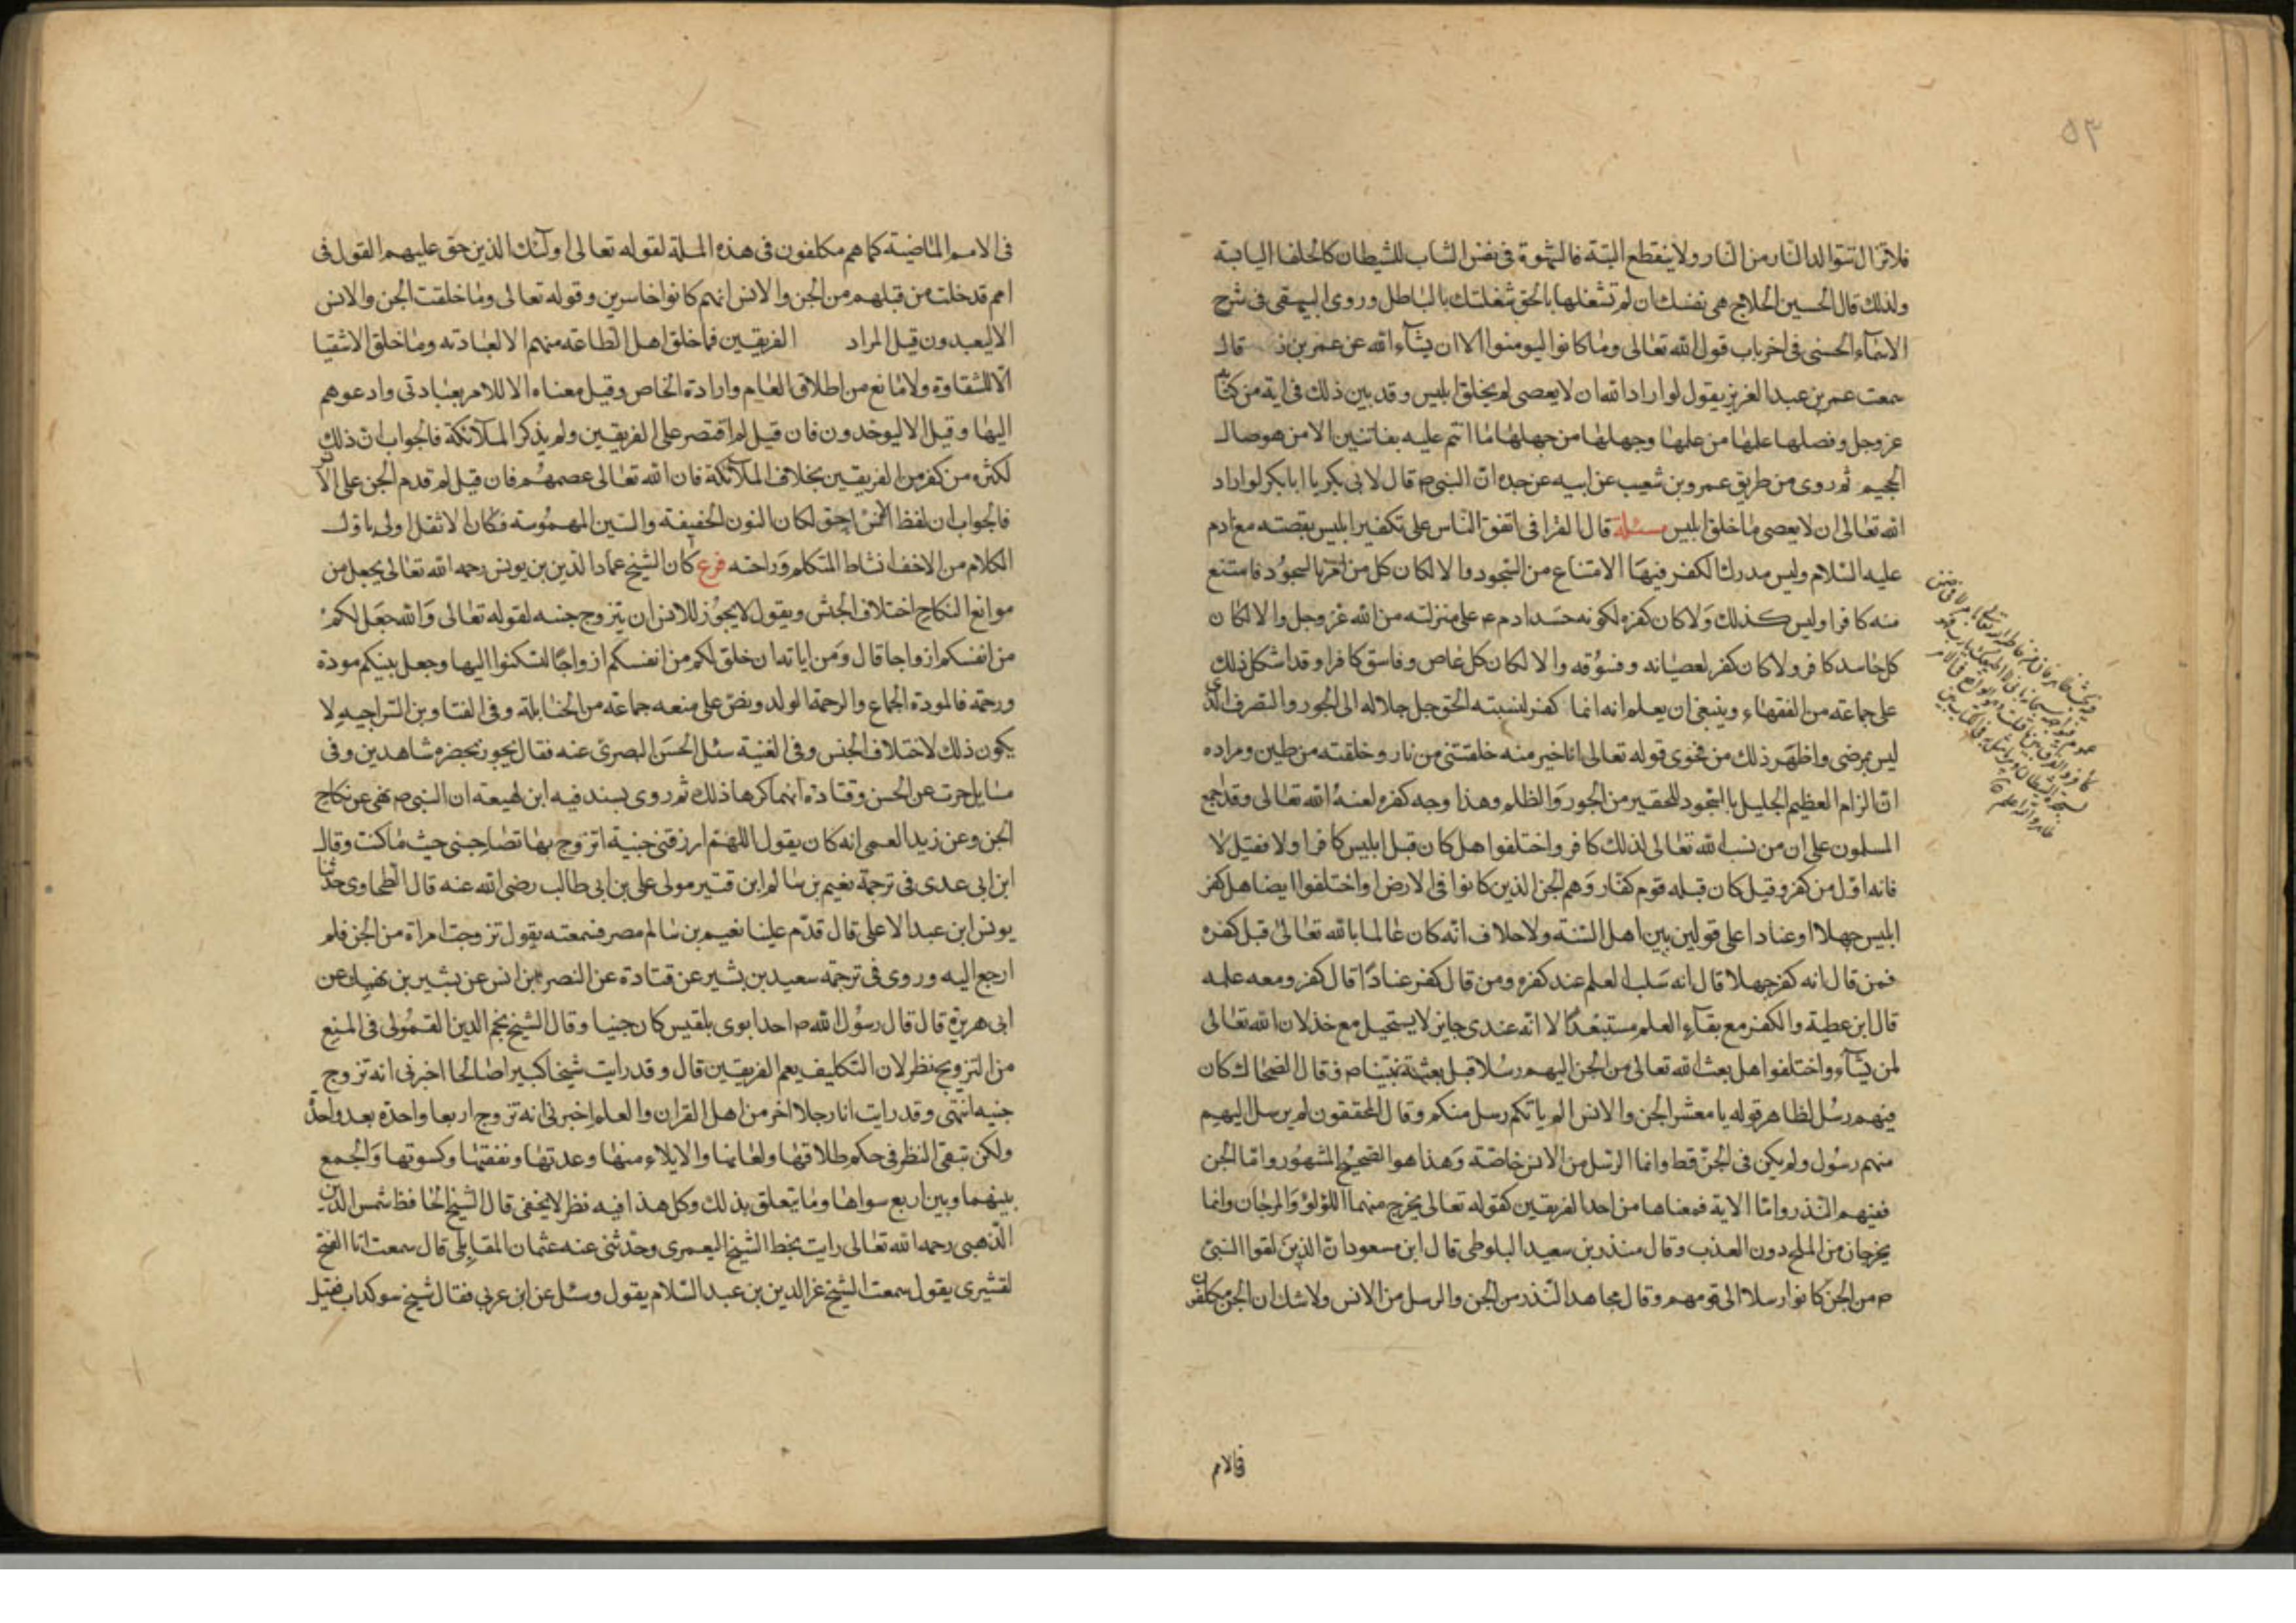 ٥٣
فلاتزال تتوالد النار من النار ولا ينقطع البتة فالشهوة فى نفس الشاب للشيطان كالحلفا اليابسة
ولذلك قال الحسين الحلاج هى نفسك ان لم تشغلها بالحق شغلتك بالباطل وروى البيهقى فى شرح
الاسمآء الحسنى فى اخر باب قول الله تعالى وما كانوا ليومنوا الا ان يشآء الله عن عمر بن ذر قال
سمعت عمر بن عبد العزيز يقول لو اراد الله ان لا يعصى لم يخلق ابليس وقد بين ذلك فى اية من كتابه
عز وجل وفصلها علمها من علمها وجهلها من جهلها ما انتم عليه بفاتنين الا من هو صال
الجحيم ثم روى من طريق عمرو بن شعيب عن ابيه عن جده ان النبى ص قال لابى بكر يا ابا بكر لو اراد
الله تعالى ان لا يعصى ما خلق ابليس مسئلة قال القرافى اتفق الناس على تكفير ابليس بقصته مع ادم
عليه السلام وليس مدرك الكفر فيها الامتناع من السجود والا لكان كل من امر بالسجود فامتنع
منه كافرا وليس كذلك ولا كان كفره لكونه حسد ادم ء م على منزلته من الله عز وجل والا لكان
كل حاسد كافر ولا كان كفر لعصيانه وفسوقه والا لكان كل عاص وفاسق كافرا وقد اشكل ذلك
على جماعة من الفقهاء وينبغى ان يعلم انه انما كفر لنسبته الحق جل جلاله الى الجور والتصرف الذى
ليس بمرضى واظهر ذلك من فحوى قوله تعالى انا خير منه خلقتنى من نار وخلقته من طين ومراده
ان الزام العظيم الجليل بالسجود للحقير من الجور والظلم وهذا وجه كفره لعنه الله تعالى وقد اجمع
المسلمون على ان من نسب الله تعالى لذلك كافر واختلفوا هل كان قبل ابليس كافر اولا فقيل لا
فانه اول من كفر وقيل كان قبله قوم كفار وهم الجن الذين كانوا فى الارض واختلفوا ايضا هل كفر
ابليس جهلا او عنادا على قولين بين اهل السنة ولا خلاف انه كان عالما بالله تعالى قبل كفره
فمن قال انه كفر جهلا قال انه سلب العلم عند كفره ومن قال كفر عنادا قال كفر ومعه علمه
قال ابن عطية والكفر مع بقآء العلم مستبعد الا انه عندى جايز لا يستحيل مع خذلان الله تعالى
لمن يشآء واختلفوا هل بعث الله تعالى من الجن اليهم رسلا قبل بعثة نبينا ص فقال الضحاك كان
منهم رسل لظاهر قوله يا معشر الجن والانس الم ياتكم رسل منكم وقال المحققون لم يرسل اليهم
منهم رسول ولم يكن فى الجن قط وانما الرسل من الانس خاصة وهذا هو الصحيح المشهور واما الجن
ففيهم النذر واما الاية فمعناها من احد الفريقين كقوله تعالى يخرج منهما اللؤلؤ والمرجان وانما
يخرجان من الملح دون العذب وقال منذر بن سعيد البلوطى قال ابن مسعود ان الذين لقوا النبى
ص من الجن كانوا رسلا الى قومهم وقال مجاهد النذر من الجن والرسل من الانس ولا شك ان الجن مكلفون
فى الامم
فى الامم الماضية كما هم مكلفون فى هذه الملة لقوله تعالى اولئك الذين حق عليهم القول فى
امم قد خلت من قبلهم من الجن والانس انهم كانوا خاسرين وقوله تعالى وما خلقت الجن والانس
الا ليعبدون قيل المراد الفريقين فما خلق اهل الطاعة منهم الا لعبادته وما خلق الاشقيا
الا للشقاوة ولا مانع من اطلاق العام وارادة الخاص وقيل معناه الا لامر بعبادتى وادعوهم
اليها وقيل الا ليوحدون فان قيل لم اقتصر على الفريقين ولم يذكر الملآئكة فالجواب ان ذلك
لكثره من كفر من الفريقين بخلاف الملآئكة فان الله تعالى عصمهم فان قيل لم قدم الجن على الانس
فالجواب ان لفظ الانس احق لكان النون الخفيفة والسين المهموسة فكان الاثقل اولى باول
الكلام من الاخف انشاط المتكلم وراحته فرع كان الشيخ عماد الدين بن يونس رحمه الله تعالى يجعل من
موانع النكاح اختلاف الجنس ويقول لا يجوز للانس ان يتزوج جنسه لقوله تعالى والله جعل لكم
من انفسكم ازواجا قال ومن اياته ان خلق لكم من انفسكم ازواجا لتسكنوا اليها وجعل بينكم مودة
ورحمة فالمودة الجماع والرحمة الولد ونص على منعه جماعة من الحنابلة وفى الفتاوى السراجيه لا
يكون ذلك لاختلاف الجنس وفى الغنية سئل الحسن البصرى عنه فقال يجوز بحضره شاهدين وفى
مسايل حرب عن الحسن وقتادة انهما كرها ذلك ثم روى بسند فيه ابن لهيعة ان النبى ص نهى عن نكاح
الجن وعن زيد العمى انه كان يقول اللهم ارزقنى جنية اتزوج بها تصاحبنى حيث ما كنت وقال
ابن ابى عدى فى ترجمة نعيم بن سالم ابن قنبر مولى على بن ابى طالب رضى الله عنه قال الطحاوى حدثنا
يونس ابن عبد الاعلى قال قدم علينا نعيم بن سالم مصر فسمعته يقول تزوجت امراة من الجن فلم
ارجع اليه وروى فى ترجمة سعيد بن بشير عن قتادة عن النصر بن انس عن بشير بن نهيك عن
ابى هريرة قال قال رسول الله ص احد ابوى بلقيس كان جنيا وقال الشيخ نجم الدين القمولى فى المنع
من التزويج نظر لان التكليف يعم الفريقين قال وقد رايت شيخا كبيرا صالحا اخبرنى انه تزوج
جنيه انتهى وقد رايت انا رجلا اخر من اهل القران والعلم اخبرنى انه تزوج اربعا واحدة بعد واحدة
ولكن تبقى النظر فى حكم طلاقها ولعانها والايلاء منها وعدتها ونفقتها وكسوتها والجمع
بينهما وبين اربع سواها وما يتعلق بذلك وكل هذا فيه نظر لا يخفى قال الشيخ الحافظ شمس الدين
الذهبى رحمه الله تعالى رايت بخط الشيخ اليعمرى وحدثنى عنه عثمان المقابلى قال سمعت ابا الفتح
لقشيرى يقول سمعت الشيخ عز الدين بن عبد السلام يقول وسئل عن ابن عربى فقال شيخ سو كداب فقيل